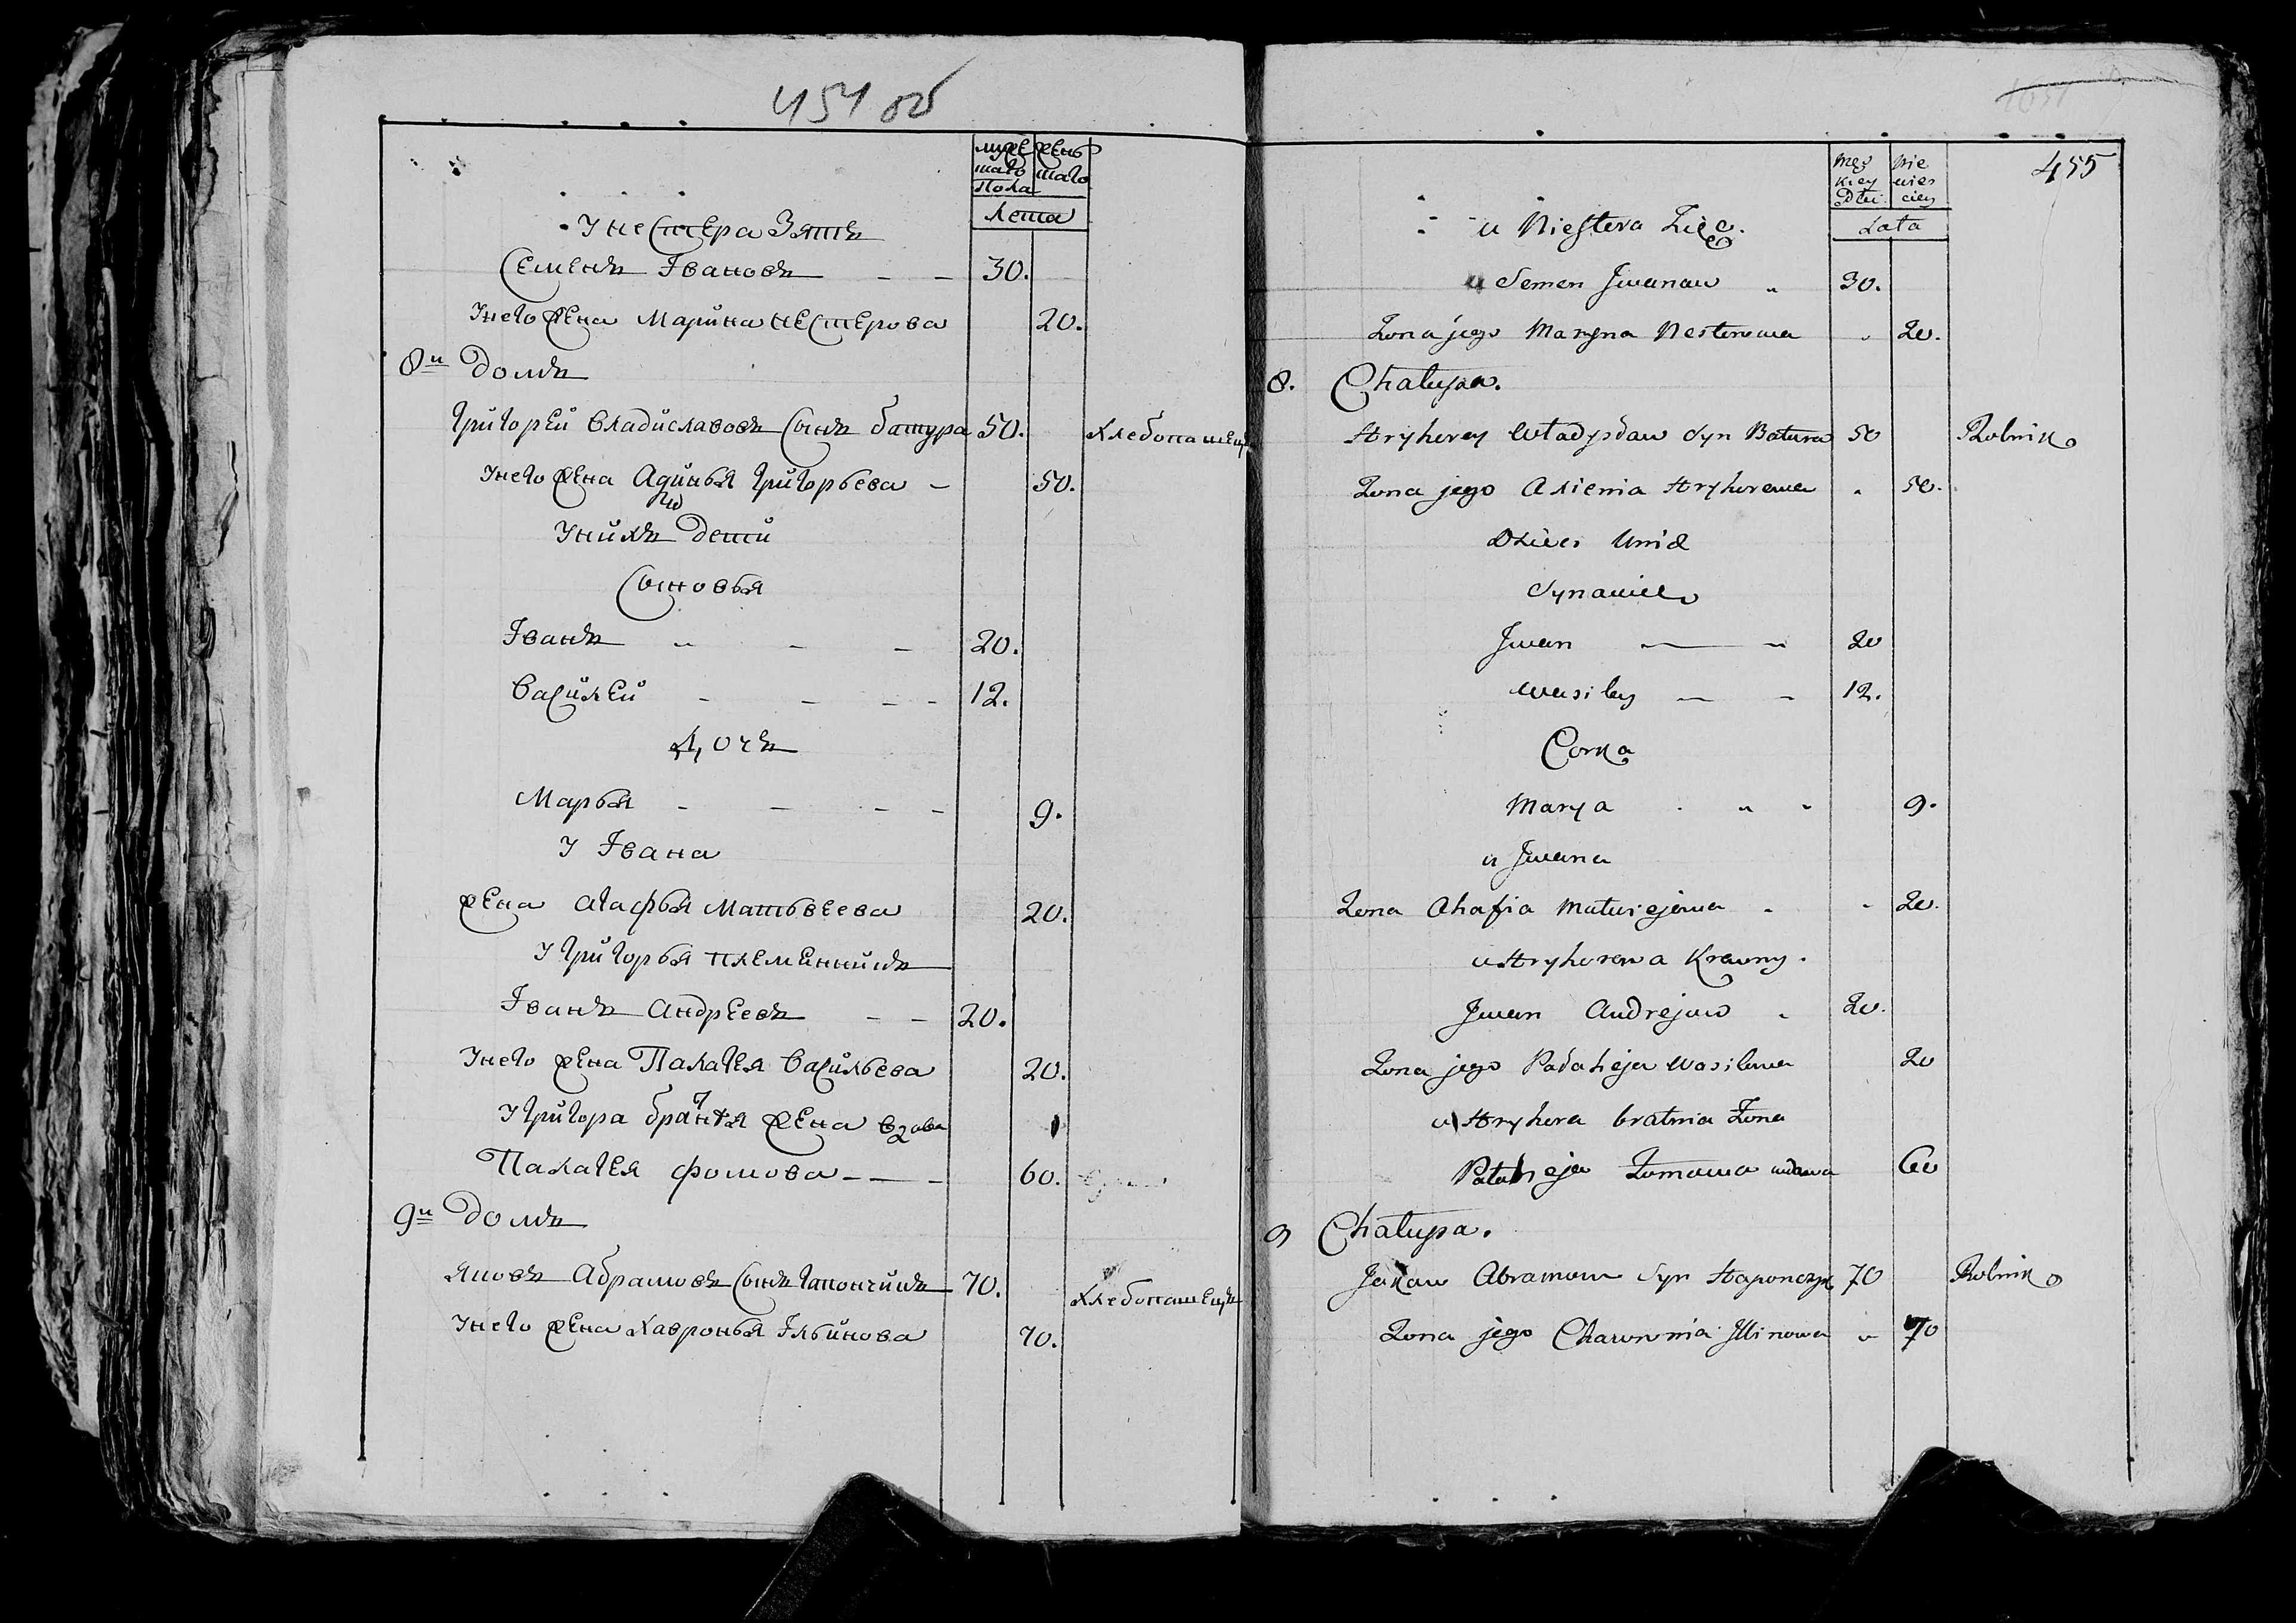 454 об
мужес
каго
женс
каго
Пола
Лета
У нестера Зять
Семенъ Ивановъ 30.
У него жена Марина нестерова 20.
8й домъ
Григорей Владиславовъ сынъ батура 50. Хлебопашец
У него жена Авдинья Григорьева 50.
У нихъ дети
Сыновья
Іванъ 20.
Василей 12.
Дочь
Марья 9.
У Івана
жена агафья Матвеева 20.
У Григорья племенникъ
Іванъ андреевъ 20.
У него жена Палагея Васильева 20.
У Григора братня жена вдова
Палагея фомова 60.
9й домъ
яковъ Абрамовъ сынъ гапончикъ 70. Хлебопашецъ
У него жена хавронья Ільинова 70.
455
męz
kiey
Płci
nie
wies
ciey
Lata
u Niestera Zięc.
u Semen Jwanaw 30.
Zona jego Maryna Nesterowa 20.
8. Chalupa.
Hryhorey Wladysław Syn Batura 50 Rolnik
Zona jego Axienia Hryhorewa 50.
Dzieci Unich
Synawie
Jwan 20
Wasiley 12.
Corka
Marya 9.
u Jwana
Zona Ahafia Matwiejewa 20.
u Hryhorewa Krewny.
Jwan Andrejew 20.
Zona jego Pałaheja Wasilewa 20
u Hryhora bratnia Zona
Palaheja Tomowa wdowa 60
9 Chalupa.
Jakaw Abramow Syn Haponczyk 70 Rolnik
Zona jego Chawronia Jllinowa 70